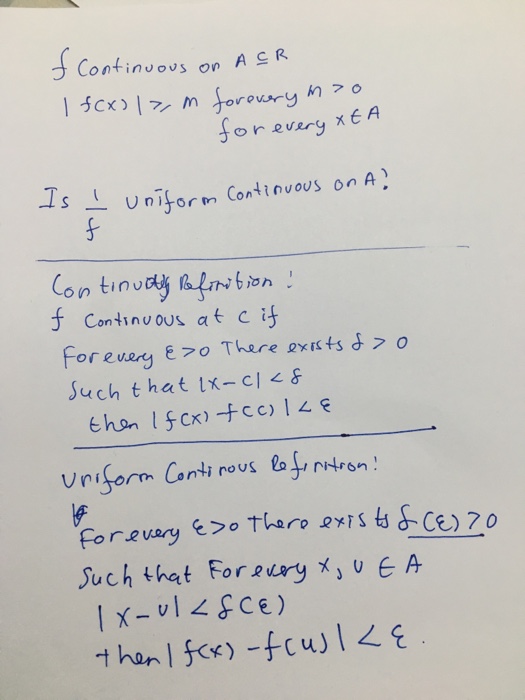 f Continuous on A ⊆ R
|f(x)| ≥ m for every m > 0
for every x ∈ A
Is 1/f uniform Continuous on A?
Continuous Definition:
f Continuous at c if
For every ε>0 There exists δ > 0
Such that |x-c| < δ
then |f(x)-f(c)| < ε
Uniform Continous Definition:
For every ε>0 there exists δ(ε)>0
Such that For every x, u ∈ A
|x-u| < δ(ε)
then |f(x)-f(u)| < ε.